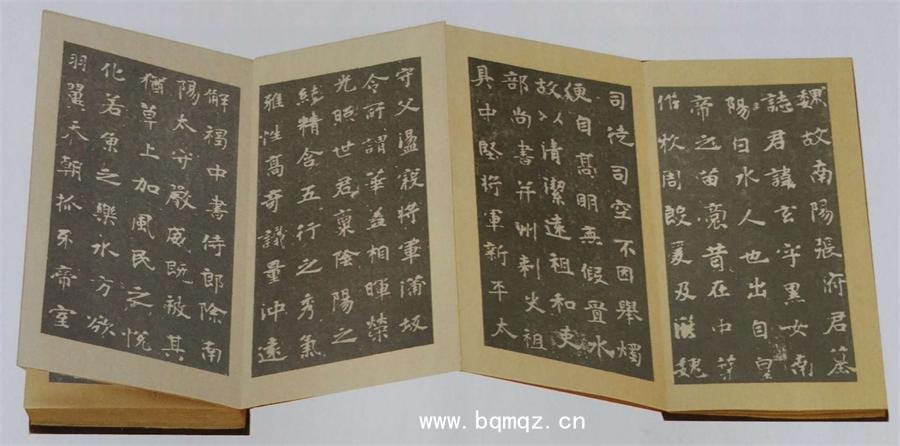 魏故南陽張府君墓
誌君諱玄字黑女南
陽白水人也出自皇
帝之苗裔昔在中葉
作牧周殷爰及漢魏
司徒司空不因舉燭
便自高明無假置水
故以清潔遠祖和吏
部尚書并州刺史祖
具中堅將軍新平太
守父盪寇將軍蒲坂
令所謂華蓋相暉榮
光照世君稟陰陽之
純精含五行之秀氣
雅性高奇識量沖遠
解褐中書侍郎除南
陽太守嚴威既被其
猶草上加風民之悅
化若魚之樂水方欲
羽翼天朝抓牙帝室
www.bqmqz.cn